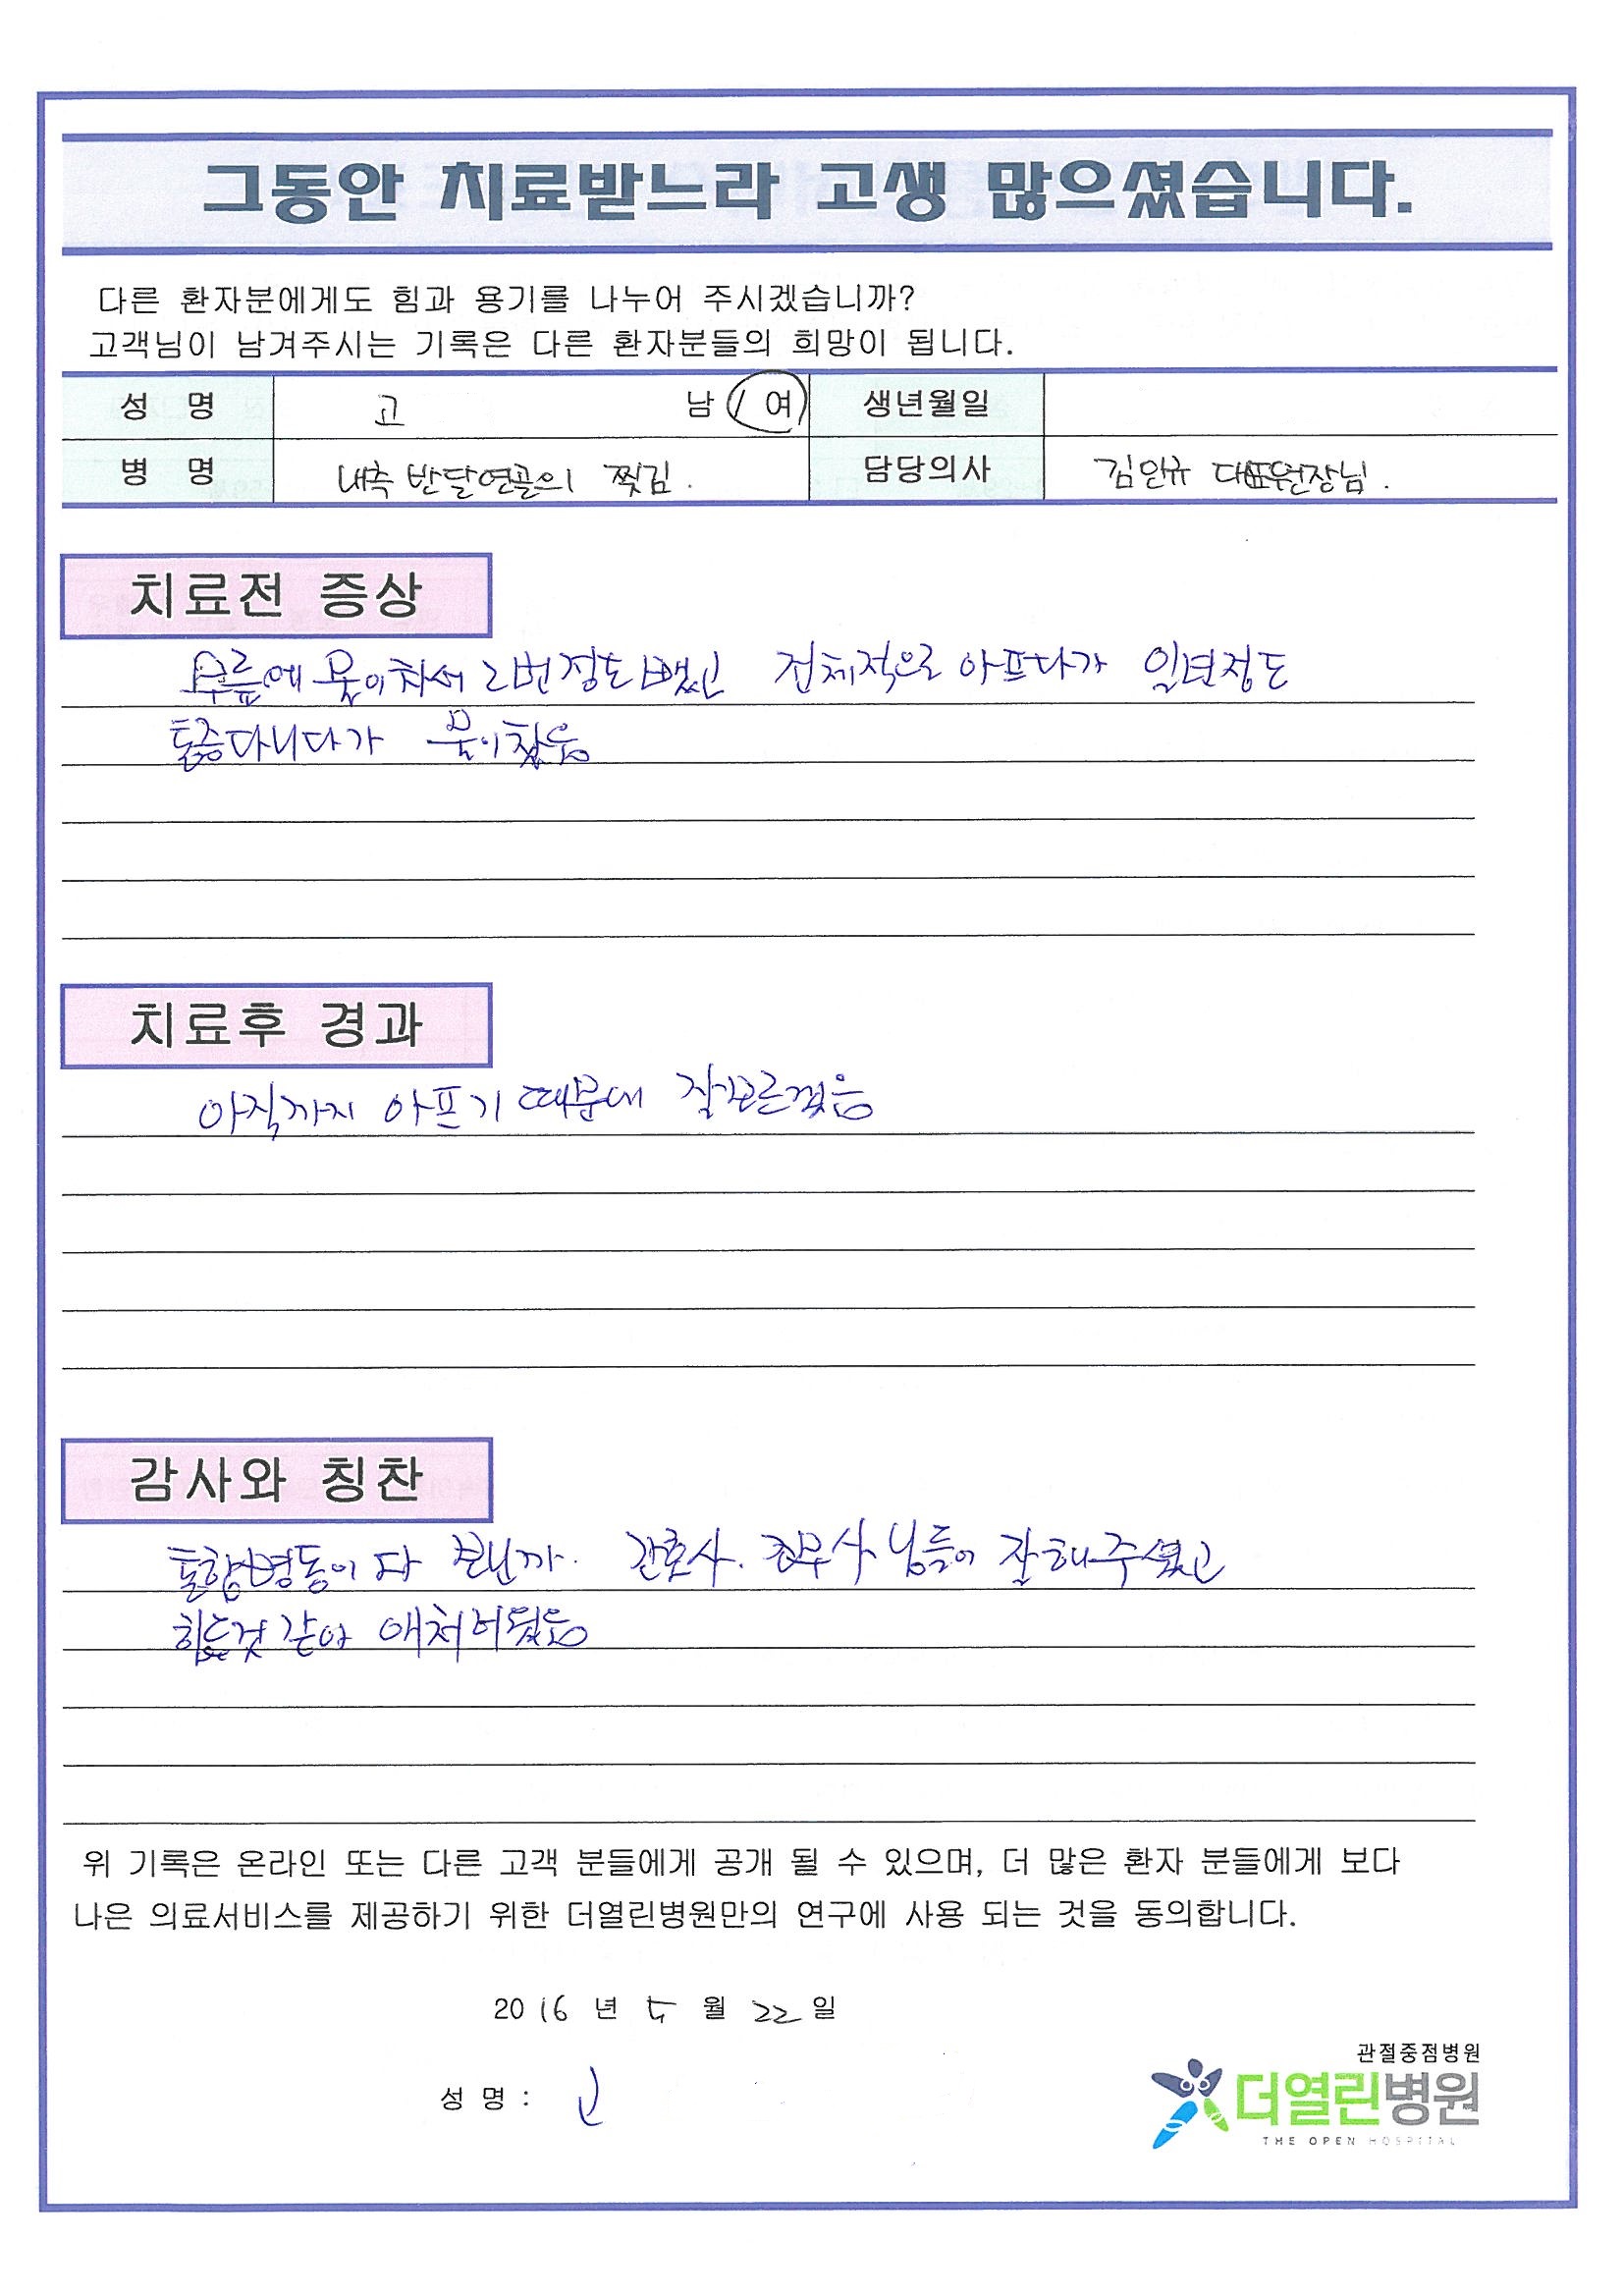 그동안 치료받느라 고생 많으셨습니다.
다른 환자분에게도 힘과 용기를 나누어 주시겠습니까?
고객님이 남겨주시는 기록은 다른 환자분들의 희망이 됩니다.
성 명 고 남 / 여 생년월일
병 명 내측 반달연골의 찢김. 담당의사 김인규 대표원장님.
치료전 증상
무릎에 물이차서 2번정도 뺐고 전체적으로 아프다가 일년정도
통증다니다가 물이찼음
치료후 경과
아직까지 아프기 때문에 잘모르겠음
감사와 칭찬
통합병동이다 보닌까. 간호사. 간무사 님들이 잘해주셨고
힘든것 같아 애처러웠음
위 기록은 온라인 또는 다른 고객 분들에게 공개 될 수 있으며, 더 많은 환자 분들에게 보다
나은 의료서비스를 제공하기 위한 더열린병원만의 연구에 사용 되는 것을 동의합니다.
2016 년 5 월 22 일
성 명 : 고
관절중점병원
더열린병원
THE OPEN HOSPITAL